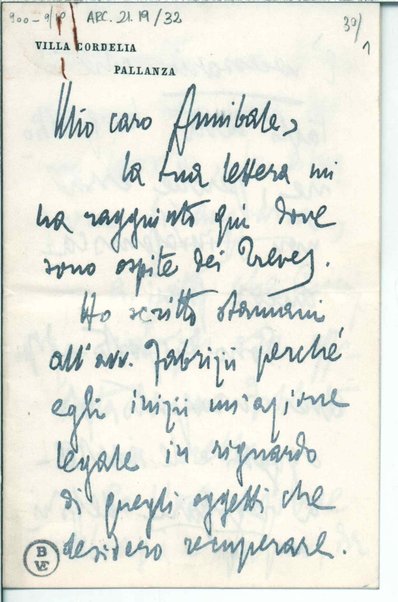 900-9/10 ARC. 21. 19/32
30/1
VILLA CORDELIA
PALLANZA
Mio caro Annibale,
la tua lettera mi
ha raggiunto qui dove
sono ospite dei Treves.
Ho scritto stamani
all'avv. Fabrizii perché
egli inizii un'azione
legale in riguardo
di quegli oggetti che
desidero recuperare.
B
VE